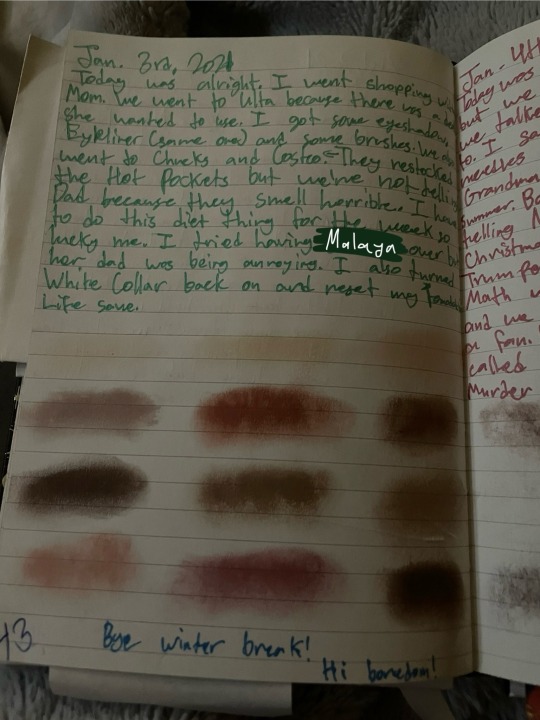 Jan. 3rd, 2021
Today was alright. I went shopping
Mom. We went to Ulta because there was a
she wanted to use. I got some eyeshadow,
Eyeliner (same one) and some brushes. We
went to Chucks and Costco. They restocked
the Hot Pockets but we're not
Dad because they smell horrible. I have
to do this diet thing for the week so
lucky me. I tried having Malaya over but
her dad was being annoying. I also turned
White Collar back on and reset my
Life save.
43
Bye winter break!
Hi boredom!
Jan. 4th
Today was
but we
we talked
to. I
needles
Grandma
summer.
telling
Christmas
Trump
Math
and we
a fan.
called
Murder